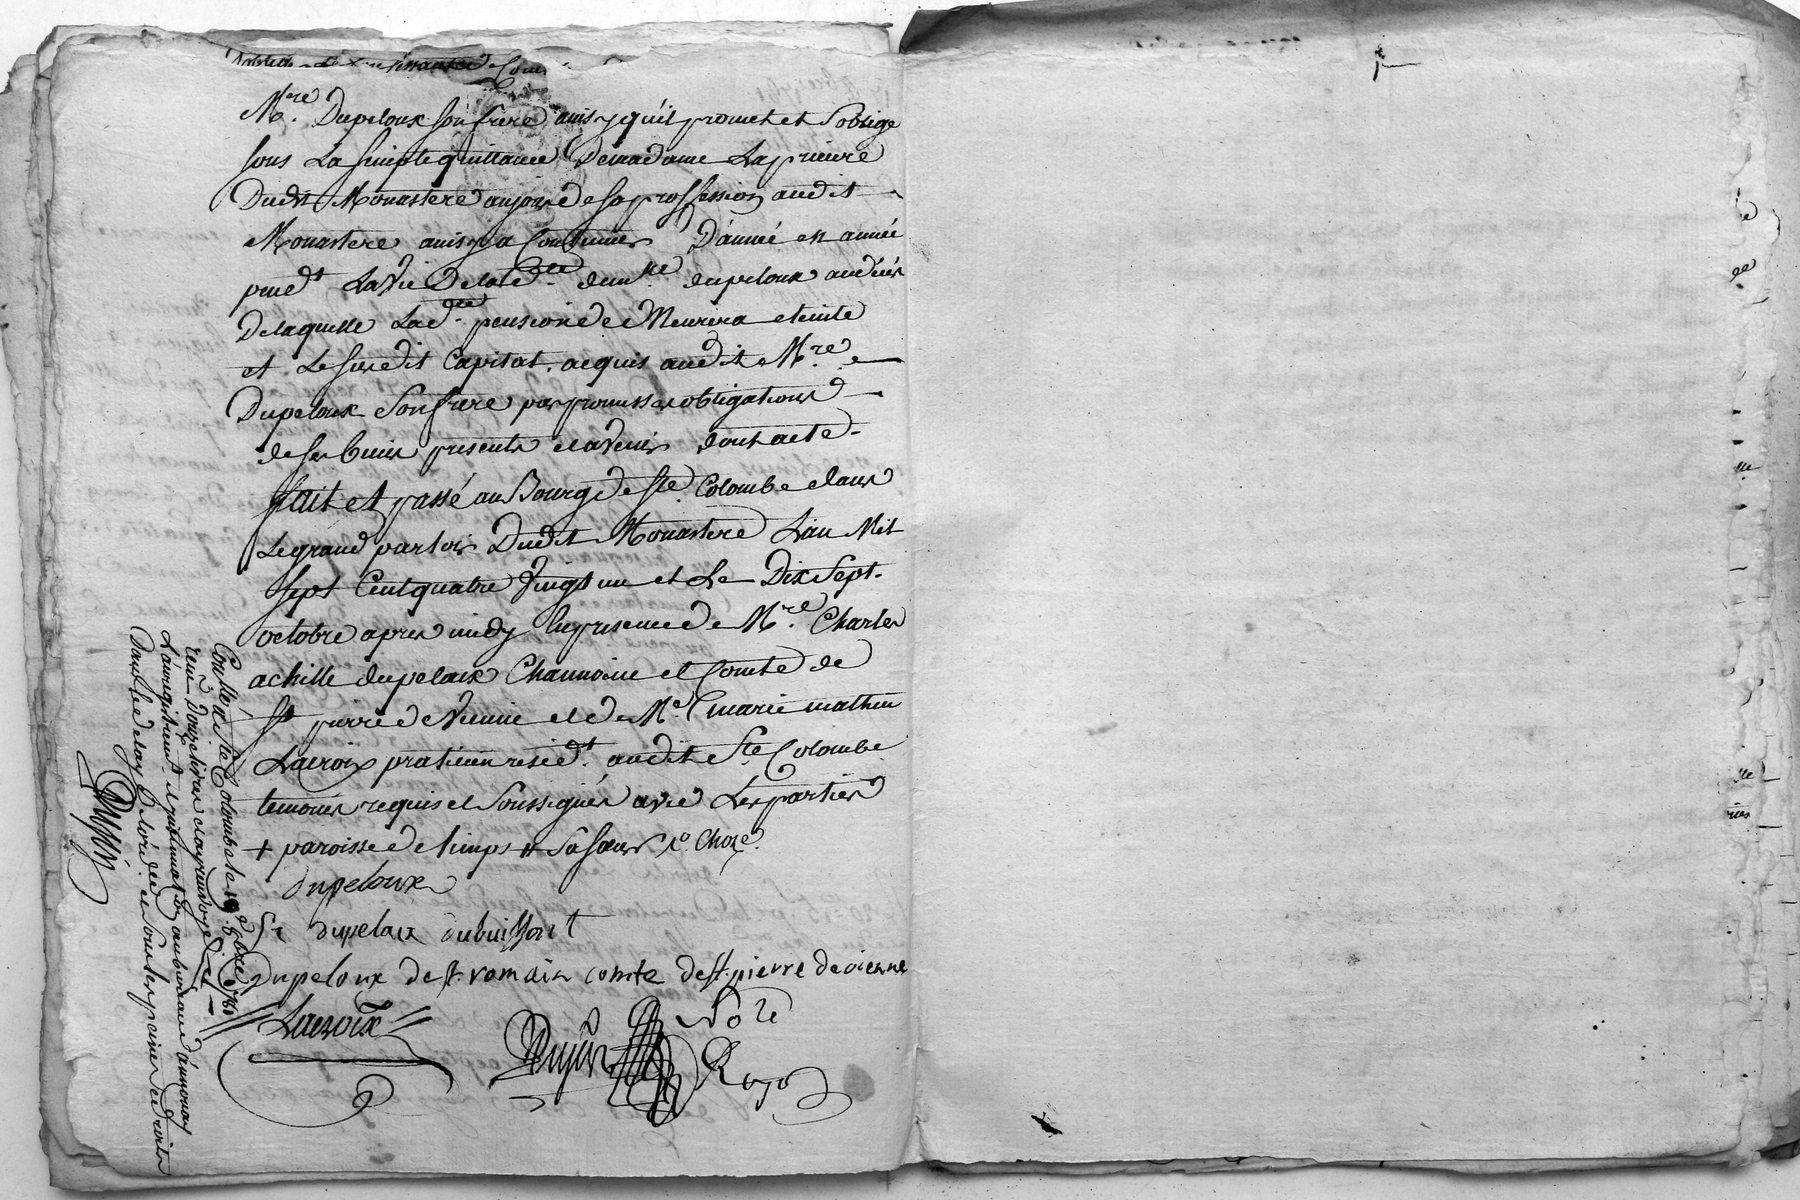 Mre. Dupeloux son frere ainsy qu'il promet et s'oblige
sous La simple quittance de madame La prieure
Dudit Monastere au jour de sa proffession audit
Monastere ainsy a Continuer D'année en année
pend.t La vie de lad.te dem.lle dupeloux au déces
De laquelle Lad.te pension demeurera eteinte
et Le susdit Capital acquis audit Mre.
Dupeloux son frere par promesses obligations
de ses biens presents et avenir dont acte
fait et passé au Bourg de Ste. Colombe dans
Le grand parloir Dudit Monastere L'an Mil
sept Cent quatre vingt un et Le Dix sept
octobre apres midy En presence de Mre. Charles
achille dupeloux Channoine et Comte de
St pierre de vienne et de Me. marie mathieu
Lacroix praticien resid.t audit Ste Colombe
temoins requis et soussignés avec Les parties
+ paroisse de limps # sa soeur
dupeloux
Sr dupeloux dubuissont
Dupeloux de st romain comte de st pierre de vienne
Lacroix
Dujas Nore
Royo
Conllé a Ste Colombe le 19 8bre 1781
reçu Douze livres
L'enregistrement et insinuation au bureau d'annonay
Dans le delay de l'ordce. et sous les peines et droits
Dujas